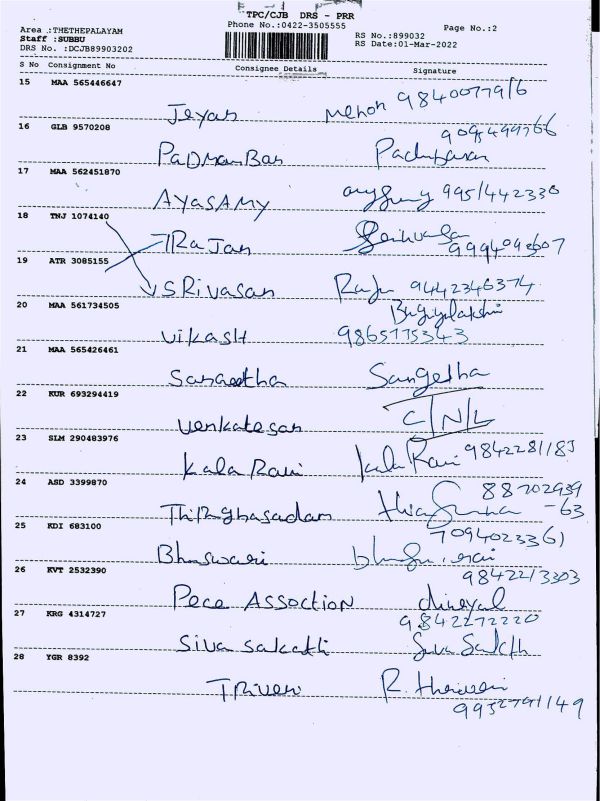 TPC/CJB DRS - PRR
Phone No.:0422-3505555
Page No.:2
Area .:THETHEPALAYAM
Staff :SUBBU
DRS No. :DCJB89903202
RS No.:899032
RS Date:01-Mar-2022
S No Consignment No Consignee Details Signature
15 MAA 565446647
Jeyan Menon 9840077916
16 GLB 9570208
9095499766
PADMANBAN Padmanaban
17 MAA 562451870
AYASAMY 9951442330
18 TNJ 1074140
TRAJAN
9994093607
19 ATR 3085155
SRIVASAN Raju 9442346374
20 MAA 561734505
Bagiyalakshmi
VIKASH 9865775343
21 MAA 565426461
Sangeetha Sangetha
22 KUR 693294419
Venkatesan C/N/L
23 SLM 290483976
Kala Ravi Kala Ravi 9842281183
24 ASD 3399870
88702939
-63
25 KDI 683100
7094023361
Bhuswari
26 KVT 2532390
9842213303
Pece Assoction
27 KRG 4314727
9842272220
Siva Sakathi Siva Sakth
28 YGR 8392
TRiveni R. Thriveni
9952791149